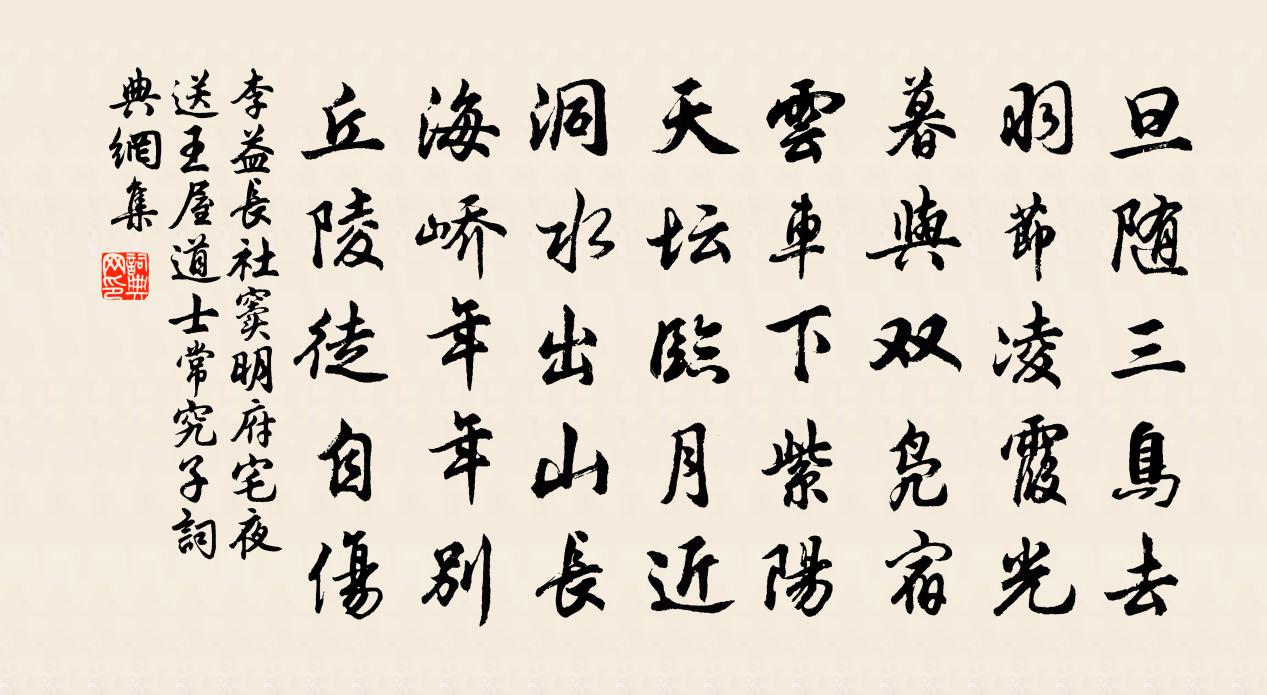 旦随三鳥去
羽節凌霞光
暮與双凫宿
雲車下紫陽
天坛臨月近
洞水出山長
海峤年年別
丘陵徒自傷
李益長社窦明府宅夜
送王屋道士常究子詞
典網集
詞典
网印